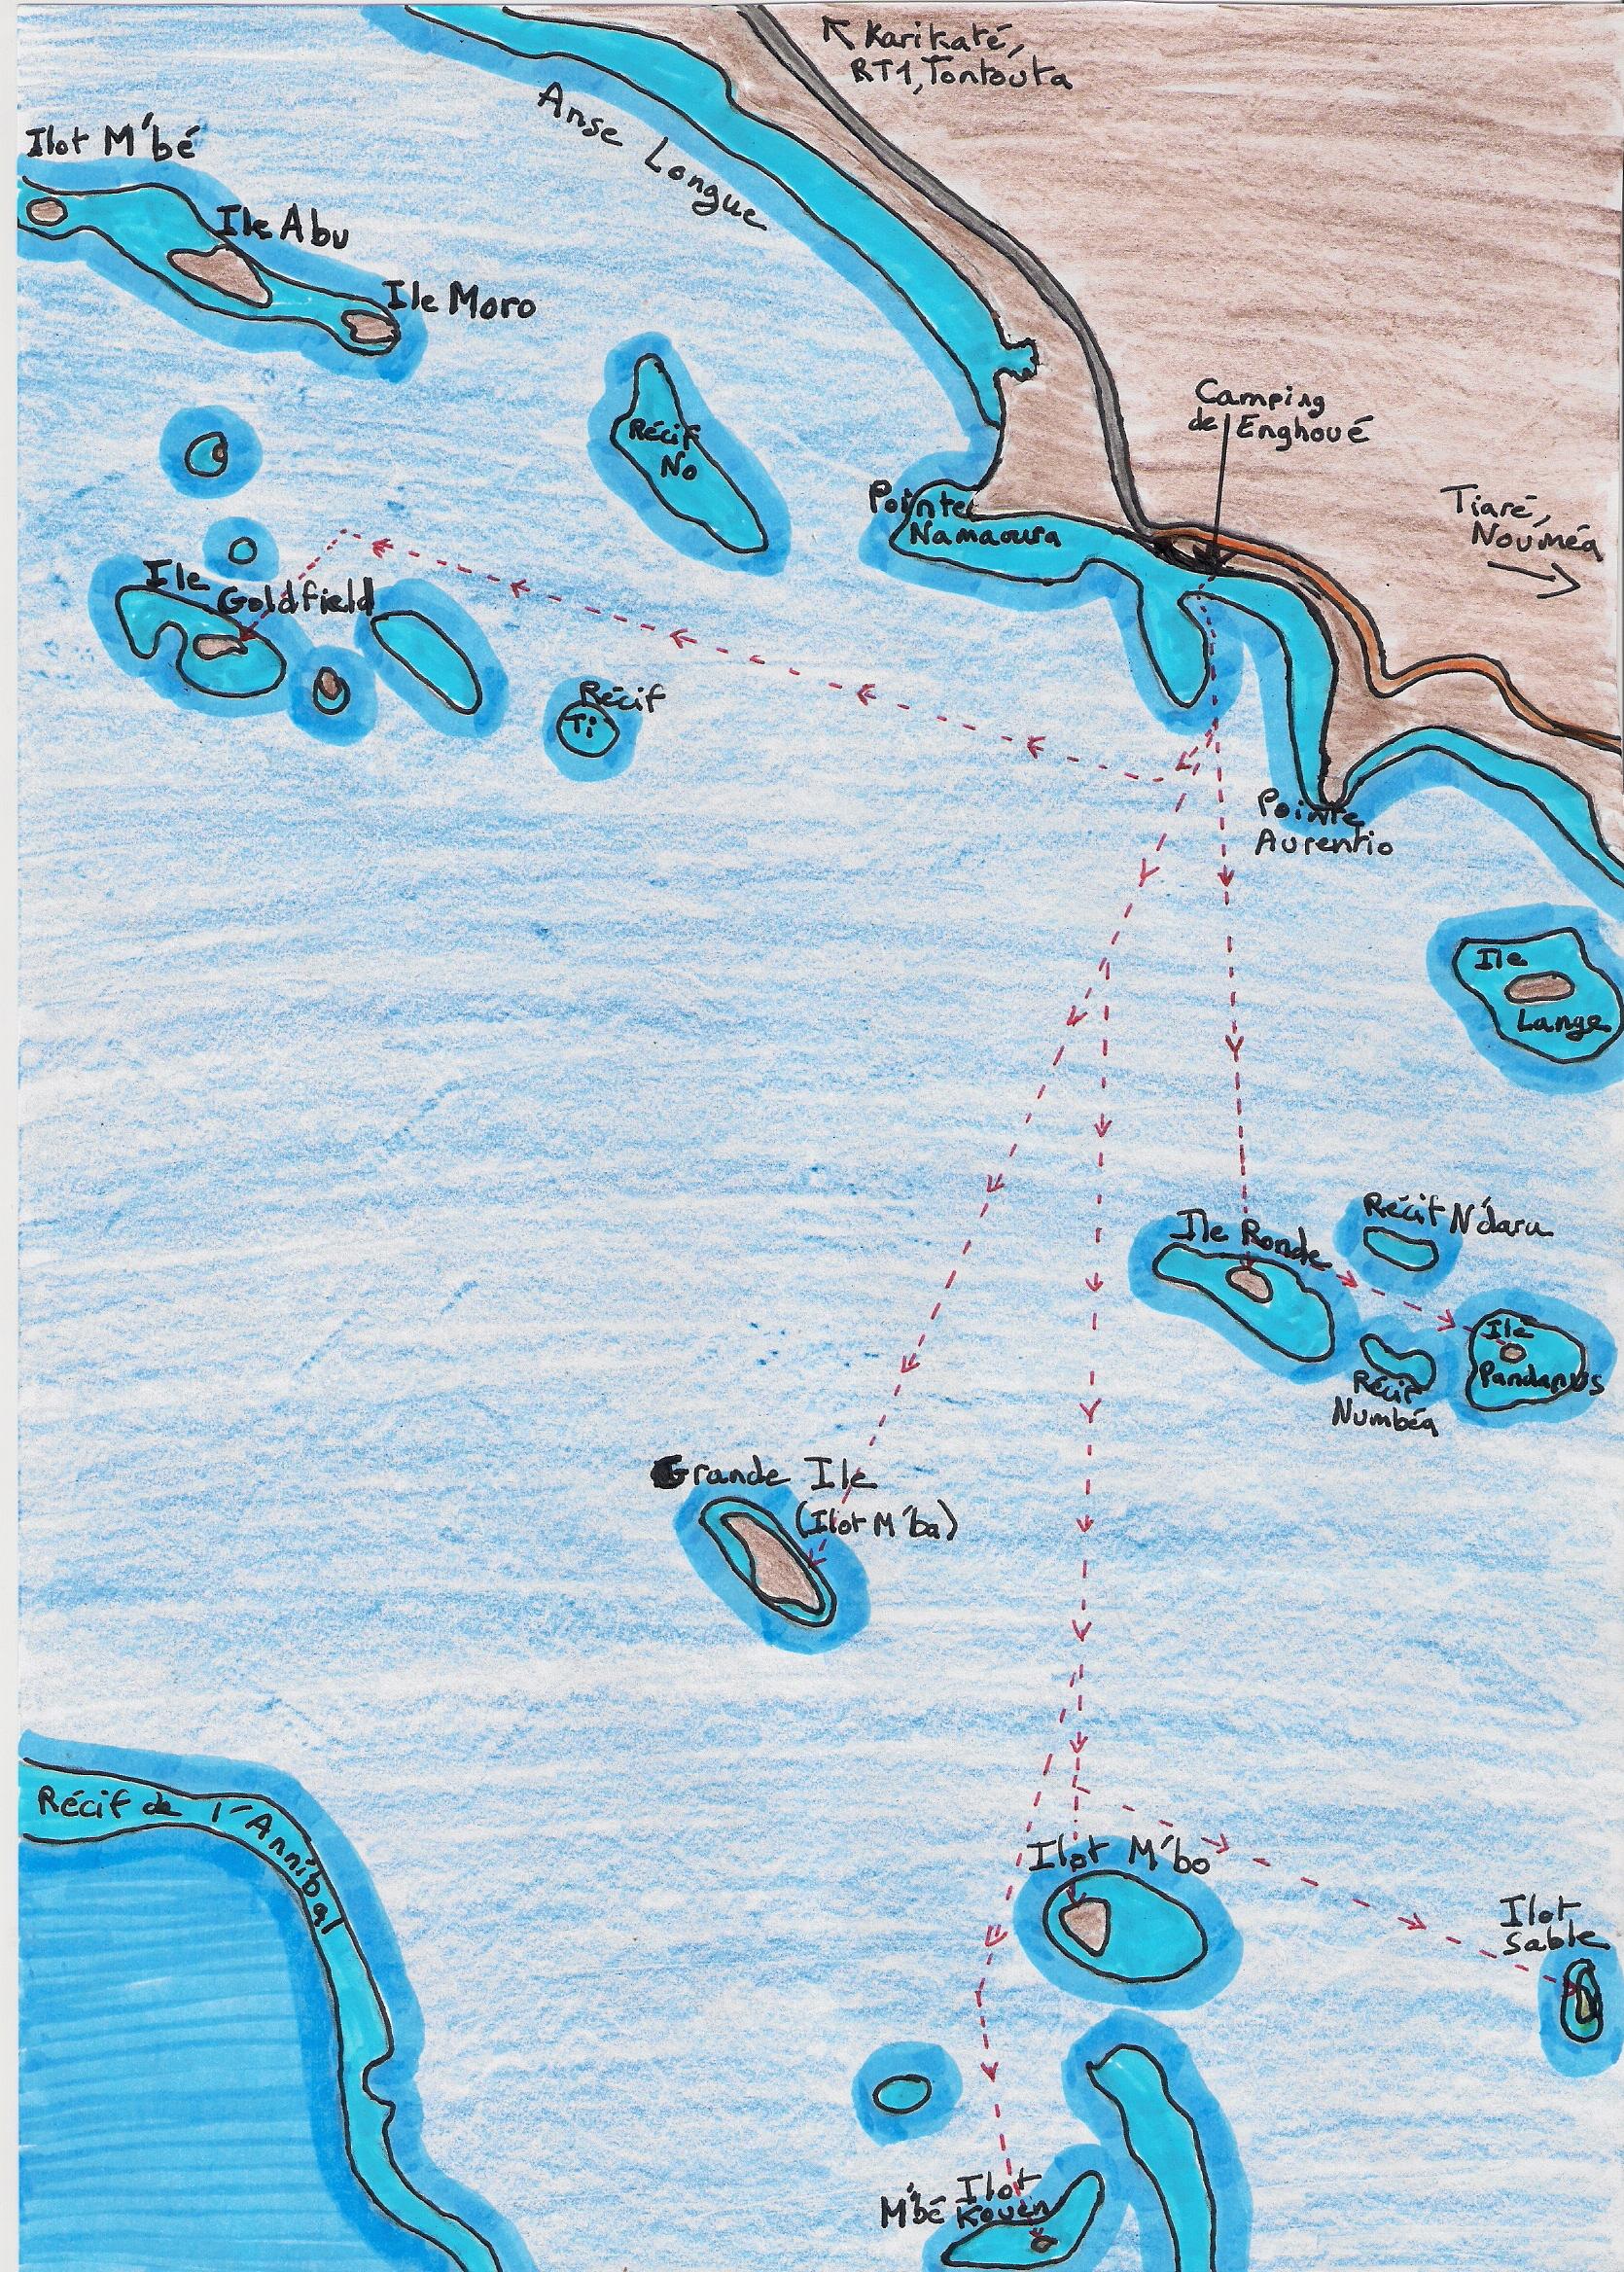 Karikaté,
RT1, Tontouta
Anse Longue
Ilot M'bé
Ile Abu
Ile Moro
Camping
de Enghoué
Récif
No
Pointe
Namaoura
Tiaré,
Nouméa
Ile
Goldfield
Récif
Ti
Pointe
Aurentio
Ile
Lange
Récif N'daru
Ile Ronde
Ile
Pandanus
Récif
Numbéa
Grande Ile
(Ilot M'ba)
Récif de l'Annibal
Ilot M'bo
Ilot
Sable
Ilot
M'bé Kouen